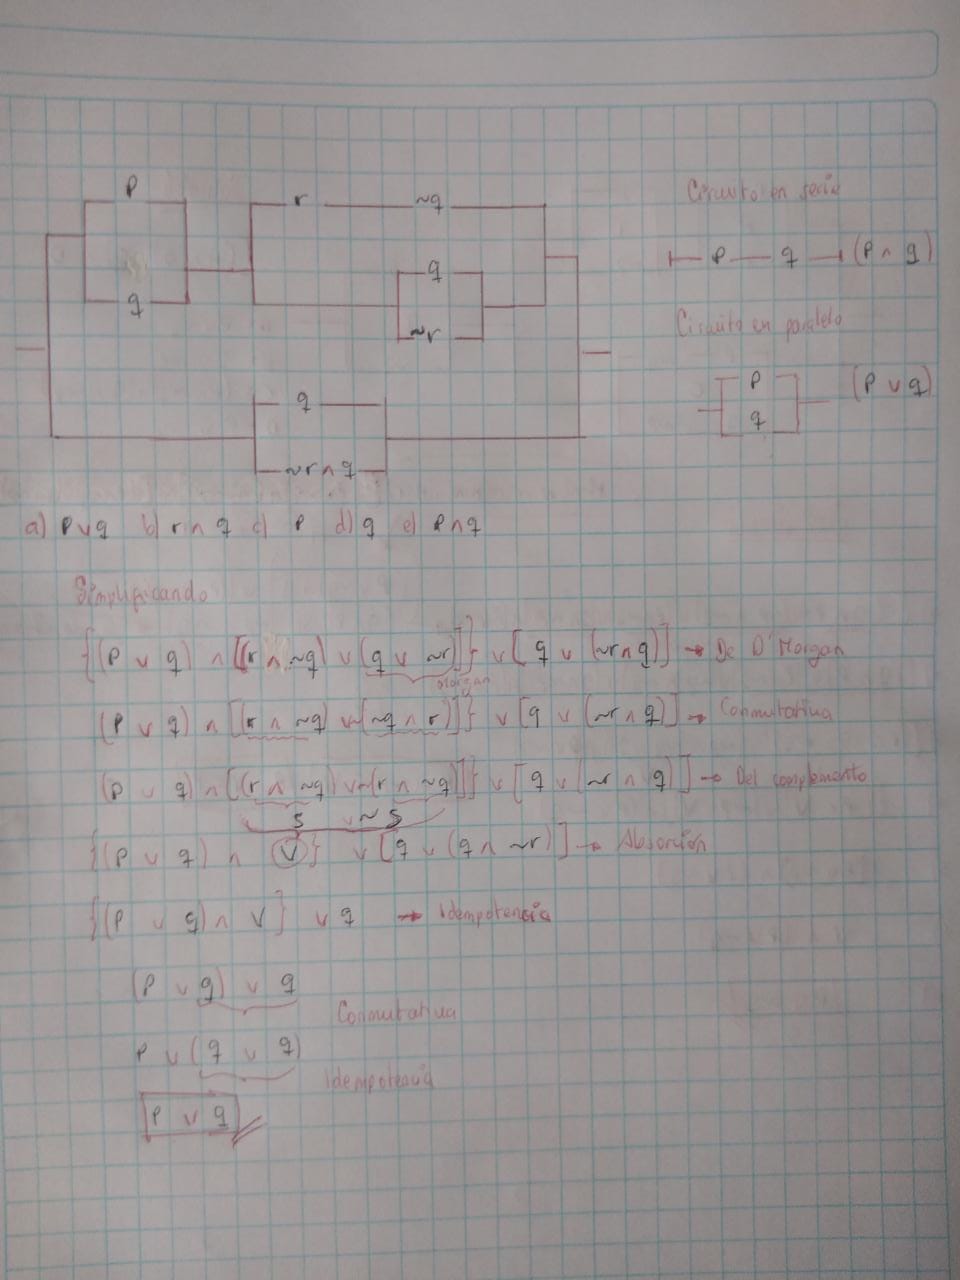 p
r ~q
q
q
~r
q
~r ∧ q
Circuito en serie
p q (p ∧ q)
Circuito en paralelo
p
q
(p ∨ q)
a) p ∨ q b) r ∧ q c) p d) q e) p ∧ q
Simplificando
{(p ∨ q) ∧ [(r ∧ ~q) ∨ (q ∨ ~r)]} ∨ [q ∨ (~r ∧ q)] → De D'Morgan
Morgan
(p ∨ q) ∧ [(r ∧ ~q) ∨ ~(~q ∧ r)]} ∨ [q ∨ (~r ∧ q)] → Conmutativa
(p ∨ q) ∧ [(r ∧ ~q) ∨ ~(r ∧ ~q)]} ∨ [q ∨ (~r ∧ q)] → Del complemento
s ∨ ~s
{(p ∨ q) ∧ V} ∨ [q ∨ (q ∧ ~r)] → Absorción
{(p ∨ q) ∧ V} ∨ q → Idempotencia
(p ∨ q) ∨ q
Conmutativa
p ∨ (q ∨ q)
Idempotencia
p ∨ q